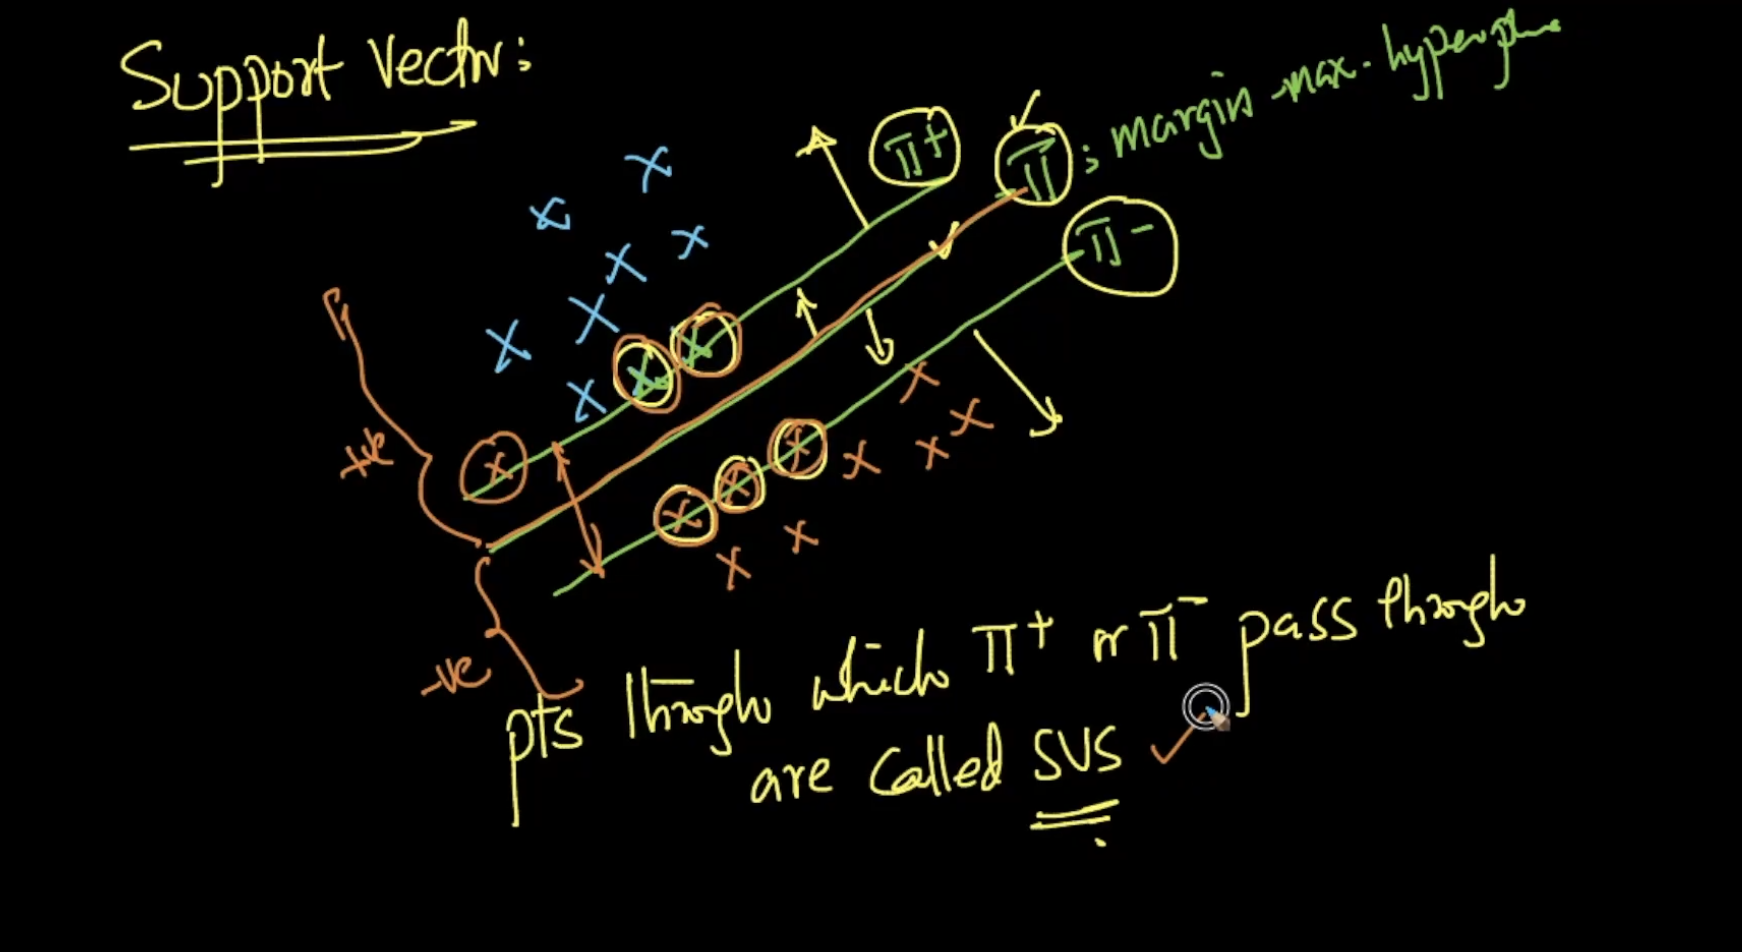 Support Vector:
π+
π : margin-max. hyperplane
π-
+ve
-ve
pts through which π+ or π- pass through
are called SVS